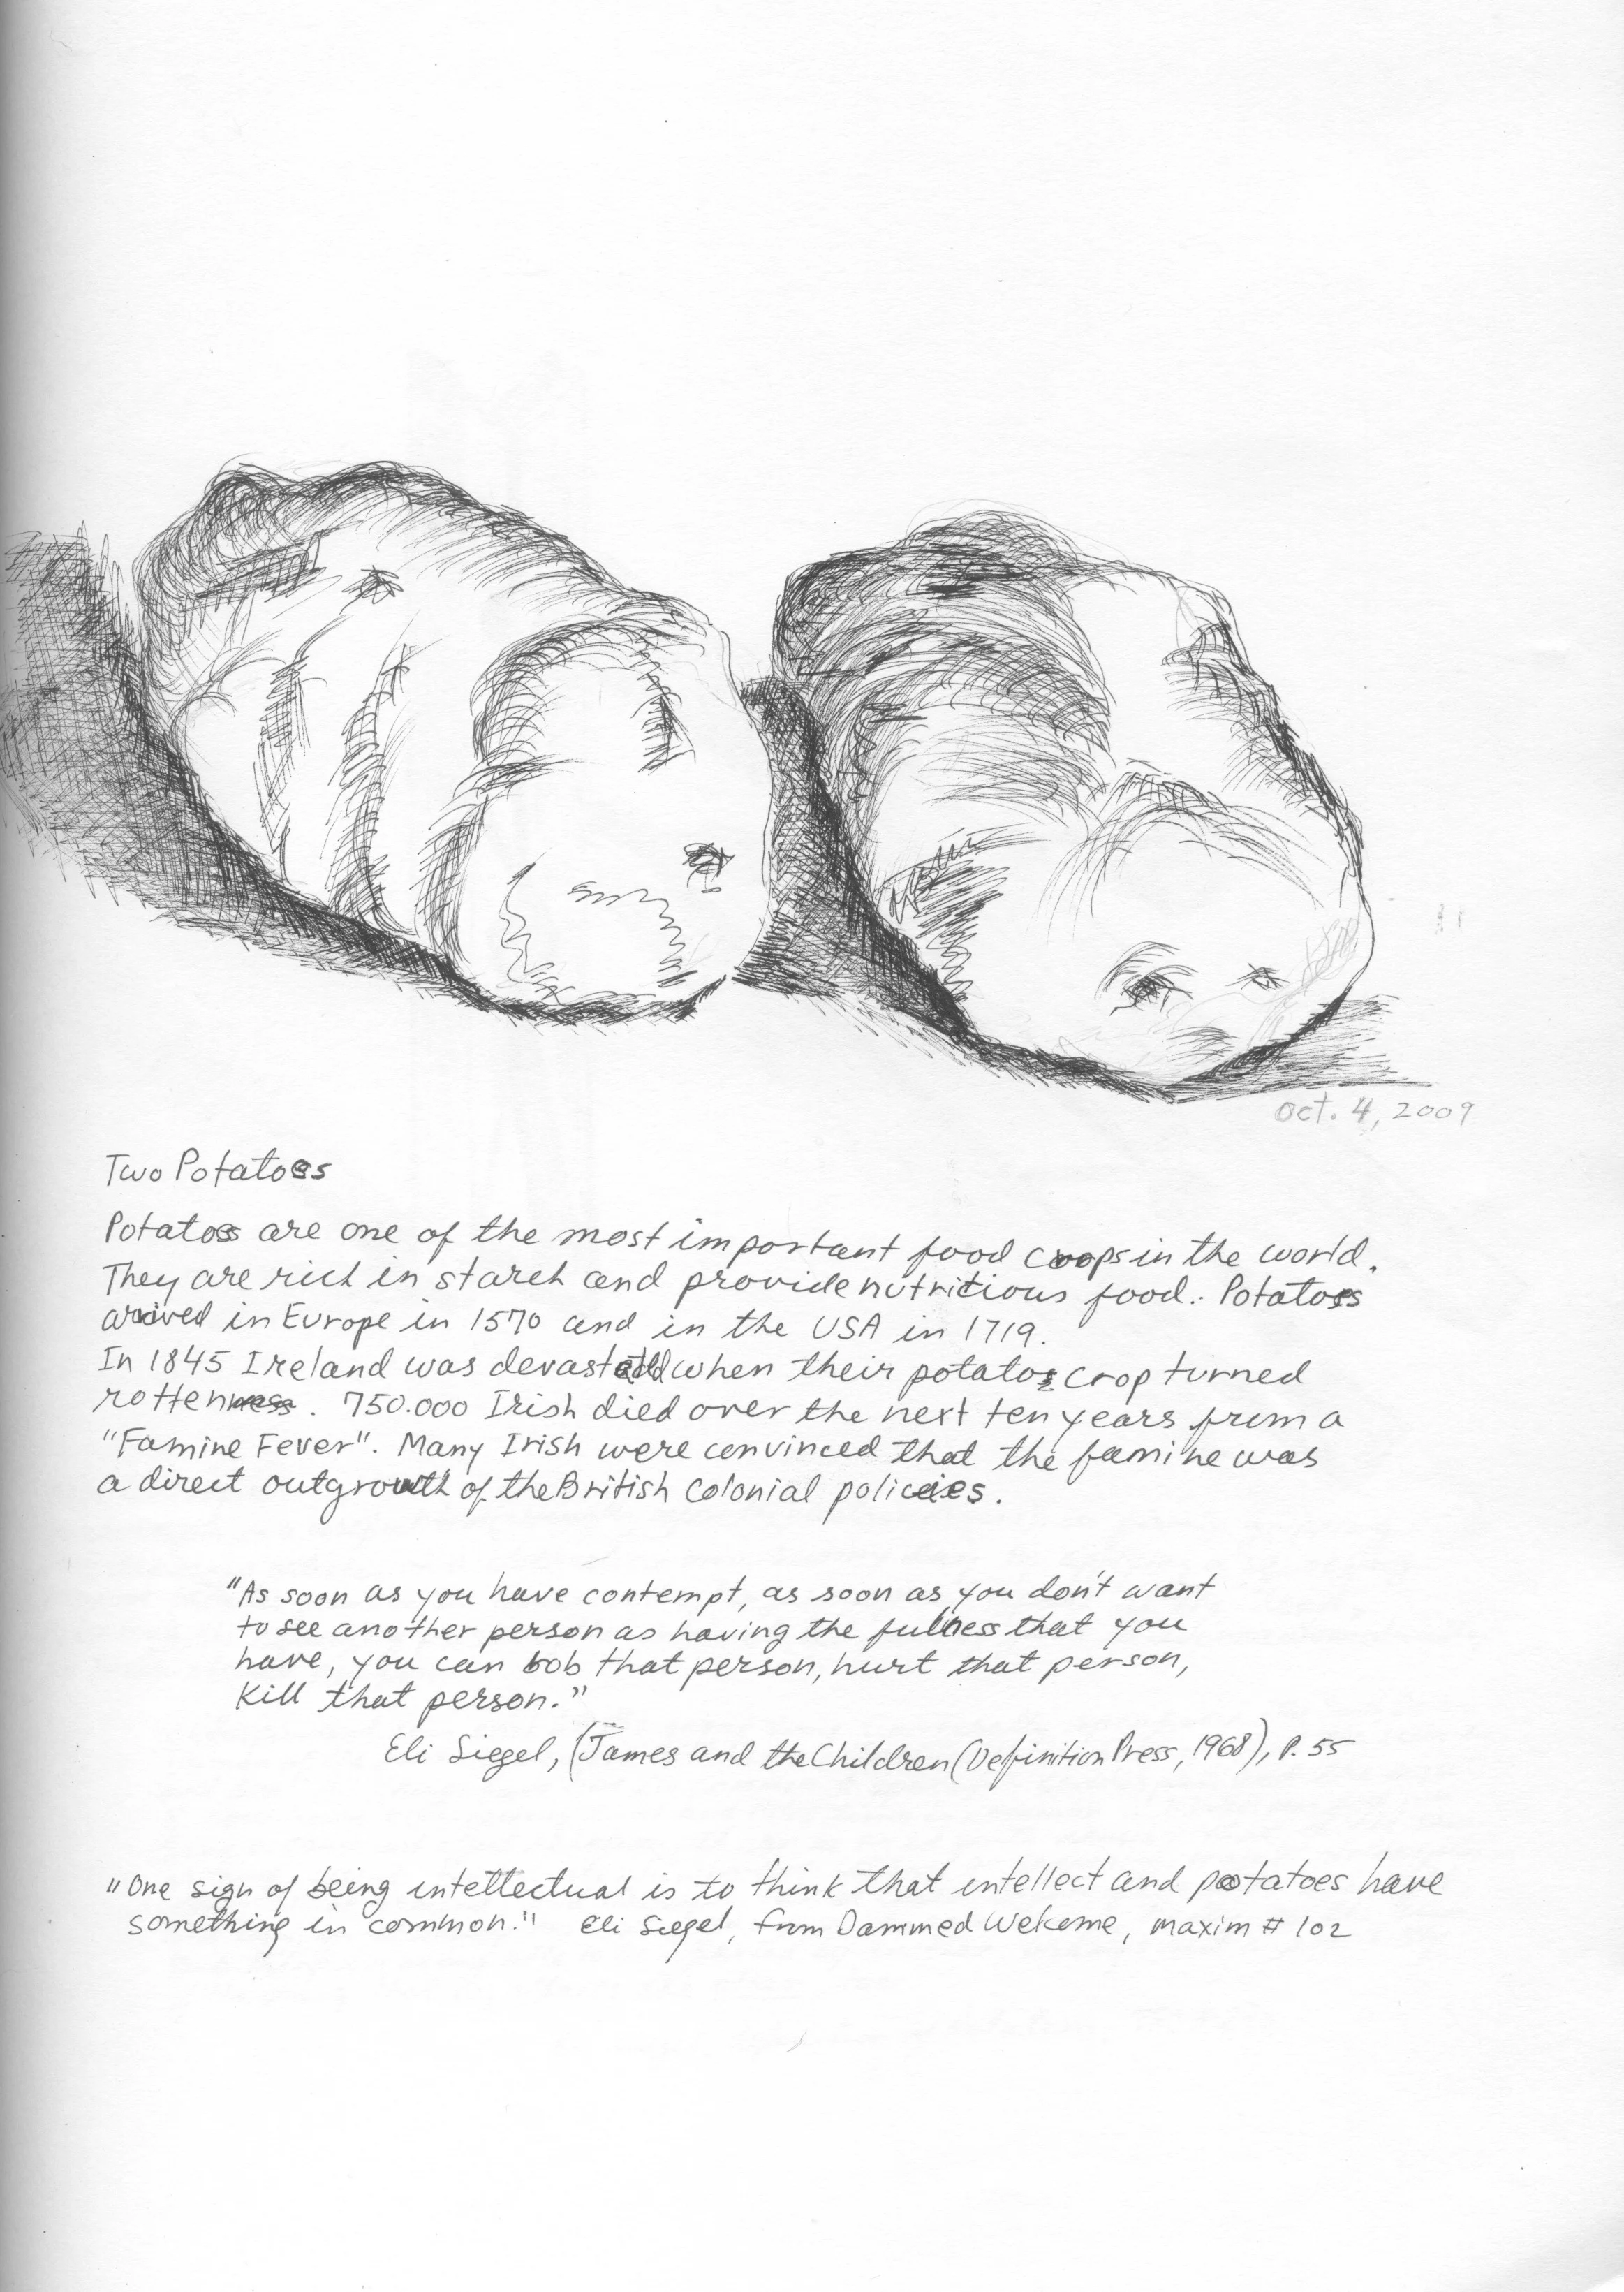 Oct. 4, 2009
Two Potatoes
Potatoes are one of the most important food crops in the world.
They are rich in starch and provide nutritious food. Potatoes
arrived in Europe in 1570 and in the USA in 1719.
In 1845 Ireland was devastated when their potatoe crop turned
rotten. 750.000 Irish died over the next ten years from a
"Famine Fever". Many Irish were convinced that the famine was
a direct outgrowth of the British Colonial policies.
"As soon as you have contempt, as soon as you don't want
to see another person as having the fullness that you
have, you can bob that person, hurt that person,
Kill that person."
Eli Siegel, (James and the Children (Definition Press, 1968), P. 55
"One sign of being intellectual is to think that intellect and potatoes have
something in common." Eli Siegel, from Dammed Welcome, maxim # 102